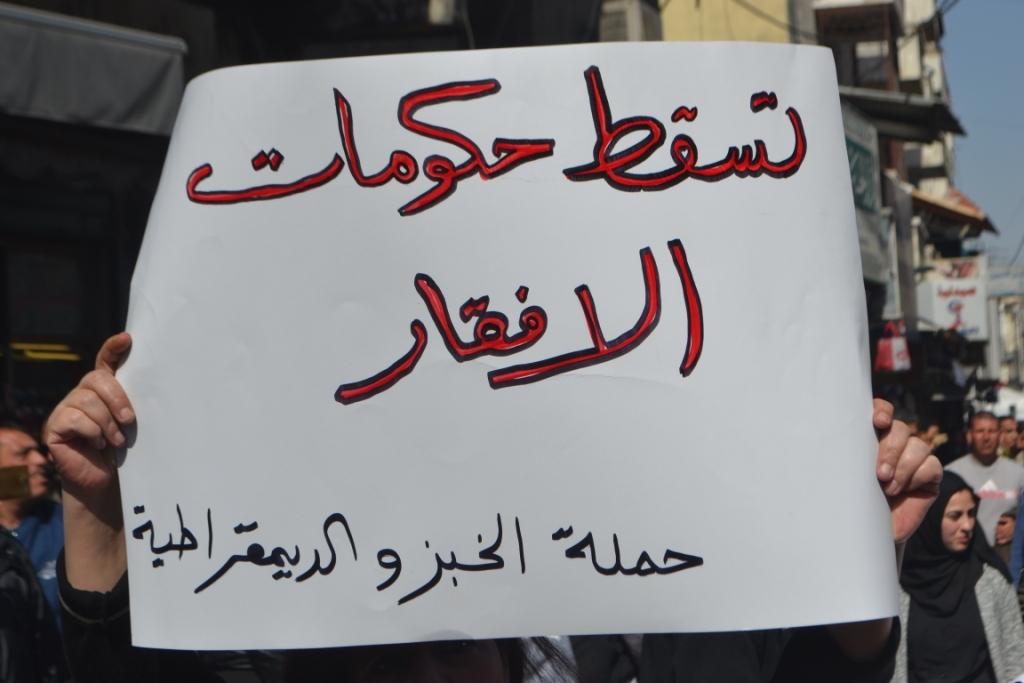 تسقط حكومات
الافقار
حملة الخبز و الديمقراطية
صيدلية